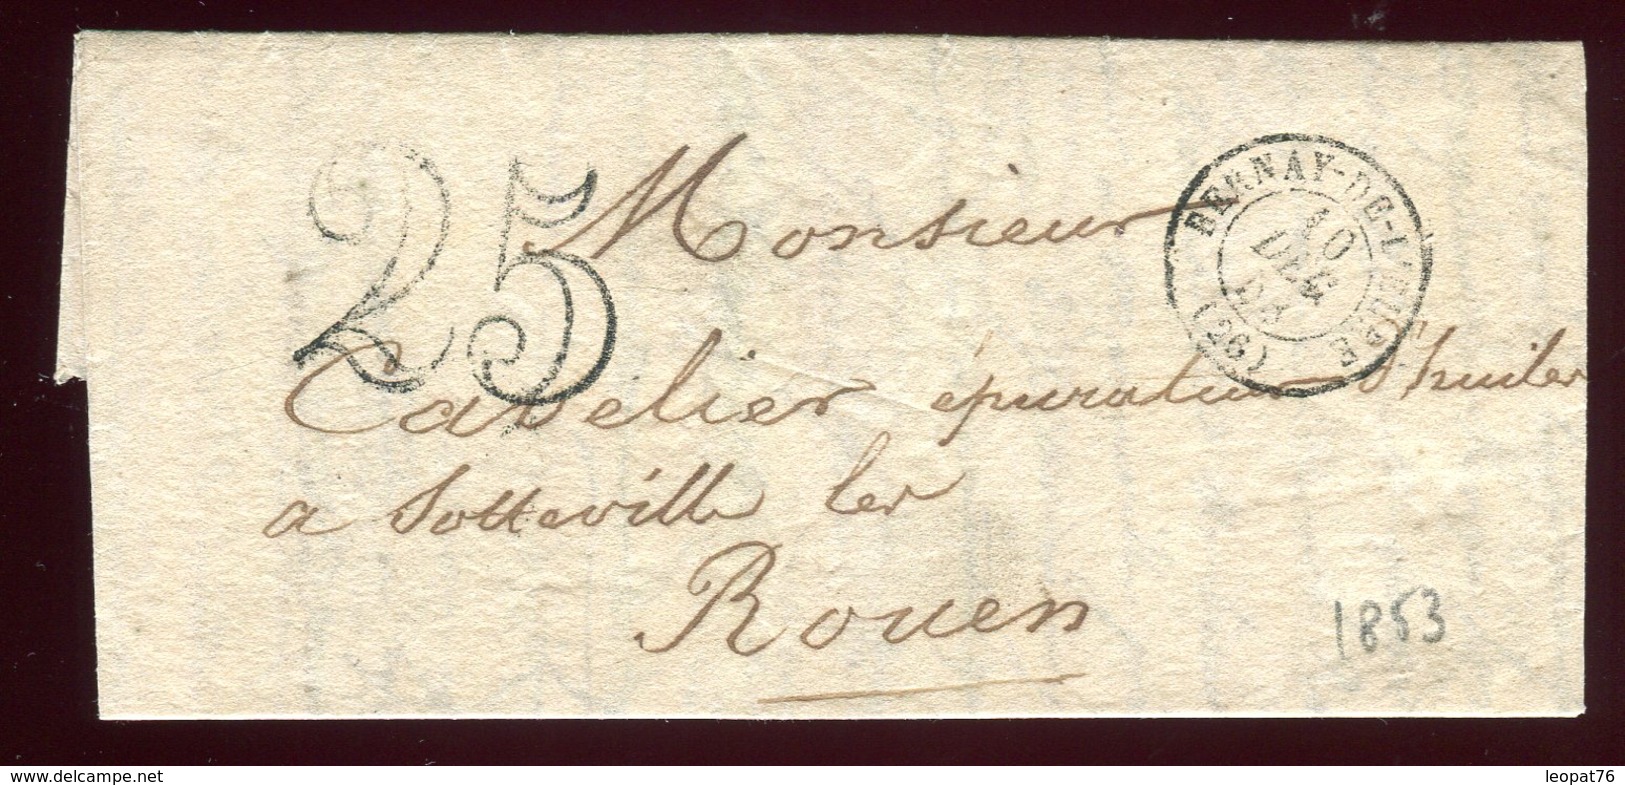 25
BERNAY-DE-L'EURE
10
DEC
53
(26)
Monsieur
Cavelier épurateur d'huiles
a Sotteville les
Rouen
1853
www.delcampe.net
leopat76